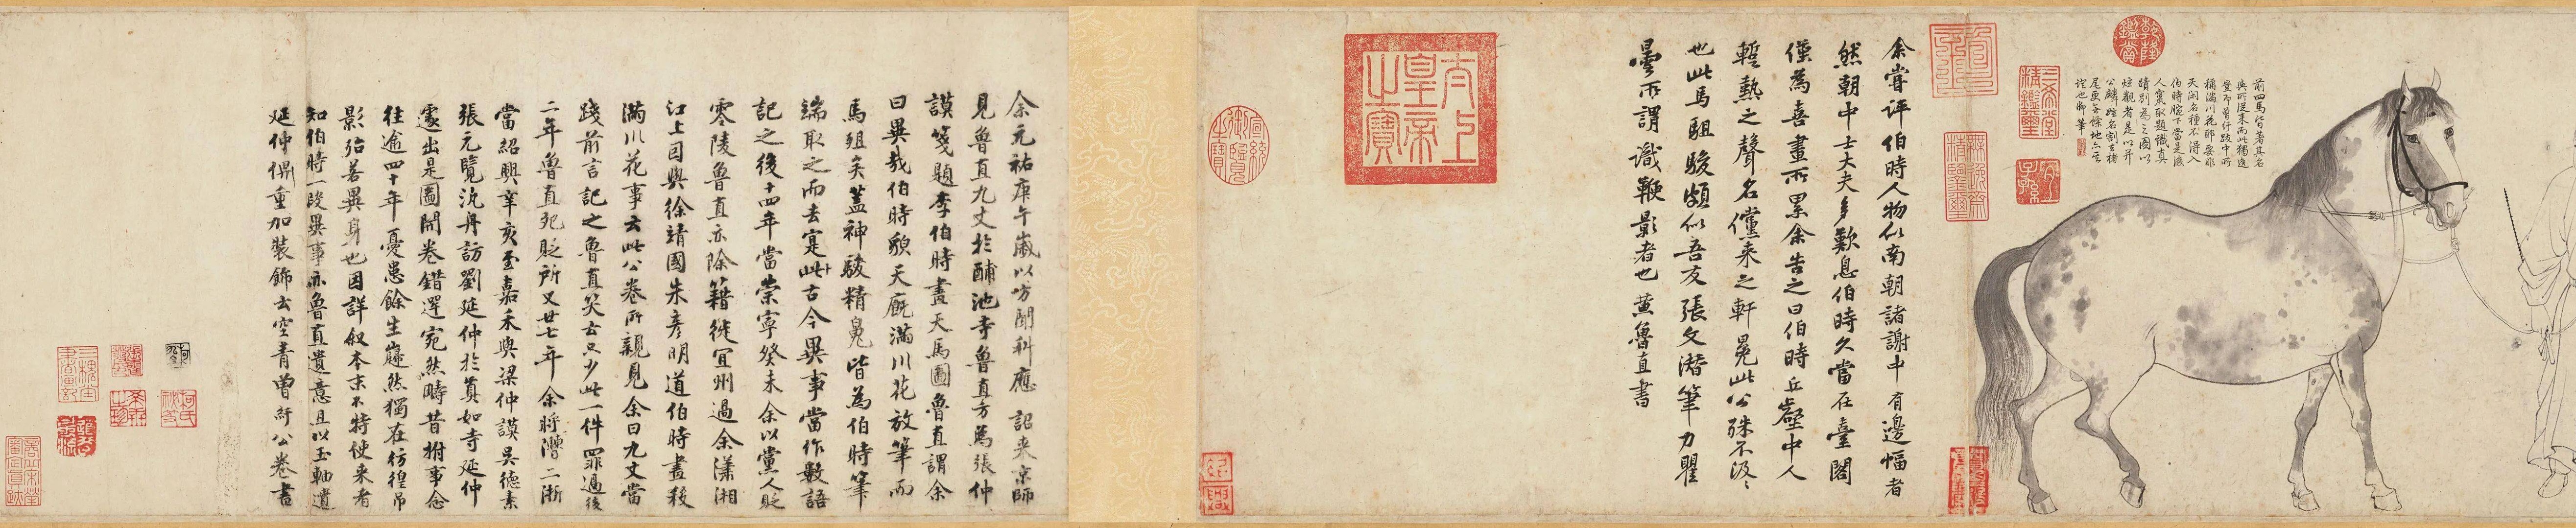 乾隆鑑賞
前四馬皆著其名
與所從來而此獨逸
豈即曾紆跋中所
稱滿川花耶要非
天閑名種不得入
伯時腕下當是後
人竄取題識真
蹟別為之圖以
炫觀者是以并
公麟姓名割去楮
尾更無餘地亦一
證也御筆
三希堂精鑑璽
宜子孫
余嘗評伯時人物似南朝諸謝中有邊幅者
然朝中士大夫多歎息伯時久當在臺閣
僅為喜畫所累余告之曰伯時丘壑中人
蹔熱之聲名儻来之軒冕此公殊不汲々
也此馬駔駿頗似吾友張文潛筆力瞿
曇所謂識鞭影者也黃魯直書
太上皇帝之寶
余元祐庚午歲以方聞科應詔来京師
見魯直九丈於酺池寺魯直方為張仲
謨箋題李伯時畫天馬圖魯直謂余
曰異哉伯時貌天廐滿川花放筆而
馬殂矣蓋神駿精魄皆為伯時筆
端取之而去寔此古今異事當作數語
記之後十四年當崇寧癸未余以黨人貶
零陵魯直亦除籍徙宜州過余瀟湘
江上因與徐靖國朱彥明道伯時畫殺
滿川花事云此公卷所親見余曰九丈當
踐前言記之魯直笑云只少此一件罪過後
二年魯直死貶所又廿七年余將漕二浙
當紹興辛亥至嘉禾與梁仲謨吳德素
張元覽汎舟訪劉延仲於真如寺延仲
遽出是圖開卷錯愕宛然疇昔拊事念
往逾四十年憂患餘生巋然獨在彷徨弔
影殆若異身也因詳敘本末不特使来者
知伯時一段異事亦魯直遺意且以玉軸遺
延仲俾重加裝飾云空青曾紆公卷書